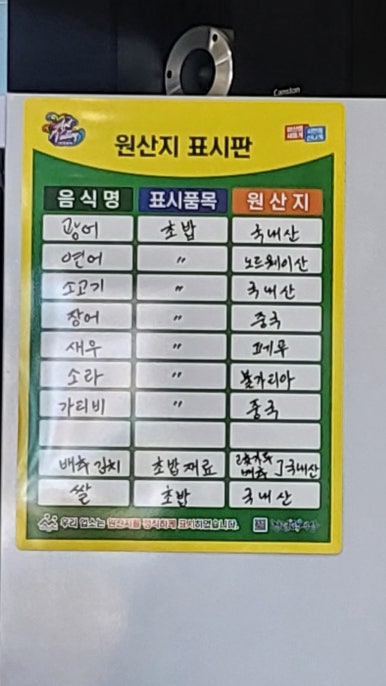 Camston
원산지 표시판
음식명 표시품목 원산지
광어 초밥 국내산
연어 〃 노르웨이산
소고기 〃 국내산
장어 〃 중국
새우 〃 페루
소라 〃 불가리아
가리비 〃 중국
배추김치 초밥재료 고춧가루 배추 ] 국내산
쌀 초밥 국내산
우리 업소는 원산지를 정직하게 표시하였습니다.